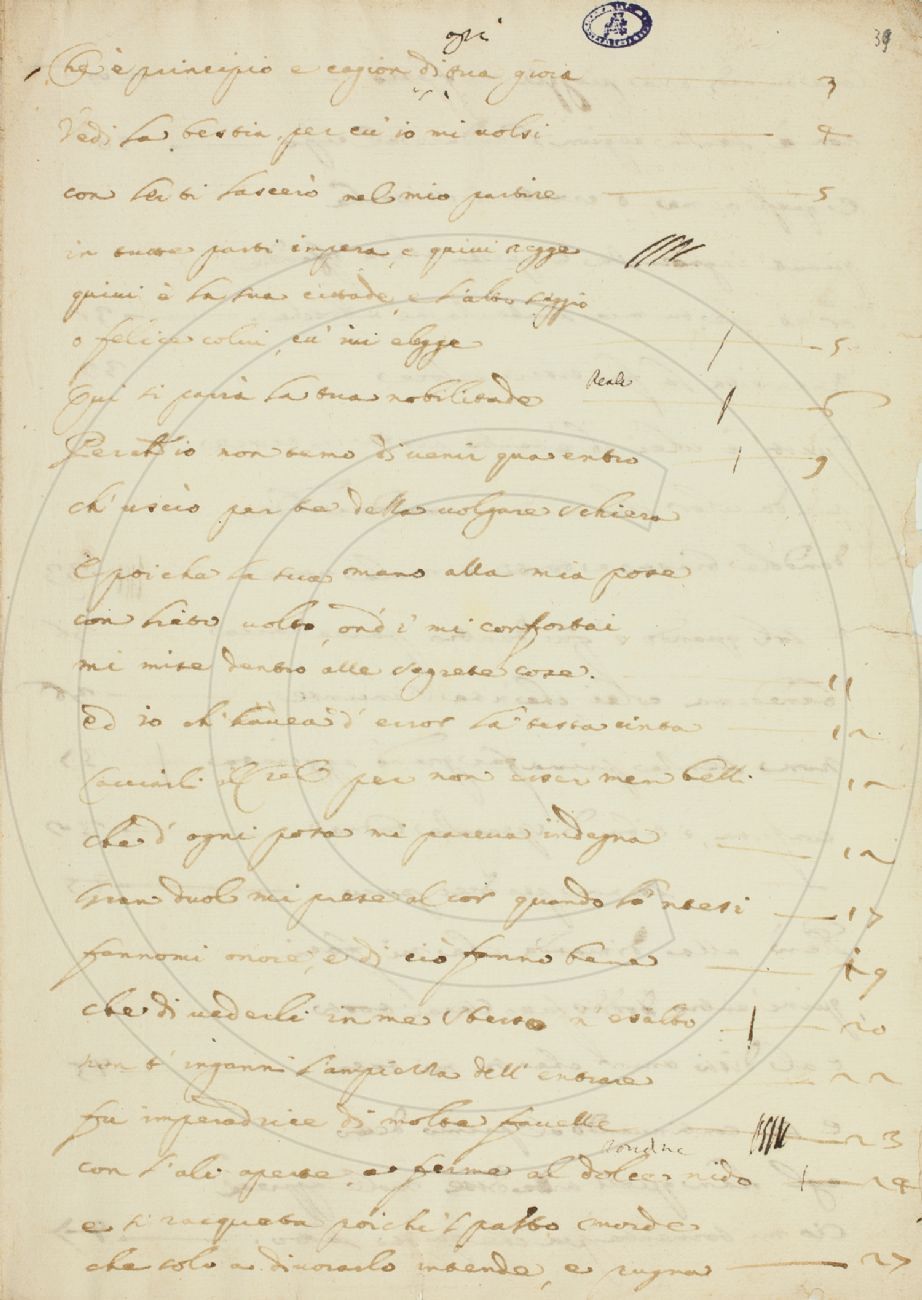 39
ogni
Che è principio e cagion di tua gioia 3
Vedi la bestia, per cu' io mi volsi 4
con lei ti lascerò nel mio partire 5
in tutte parti impera, e quivi regge
quivi è la sua cittade, e l'alto seggio
o felice colui, cu' ivi elegge 5
Qui si parrà la tua nobilitade 6
Reale
Perch'io non temo di venir qua entro 9
ch' uscìo per te della volgare schiera
E poiche la sua mano alla mia pose
con lieto volto, ond'i' mi confortai
mi mise dentro alle segrete cose. 11
ed io ch'havea d'error la testa cinta 12
Cacciarli i Ciel per non esser men belli 12
che d'ogni posa mi pareva indegna 12
Gran duol mi prese al cor quando lo 'ntesi 17
fannomi onore, e di ciò fanno bene 19
che di vederli in me stesso n'esalto 20
non t'inganni l'ampiezza dell'entrare 22
fu imperadrice di molte favelle 23
con l'ali aperte, e ferme al dolce nido 24
e si racqueta poichè 'l pasto morde
che solo a divorarlo intende, e pugna 27